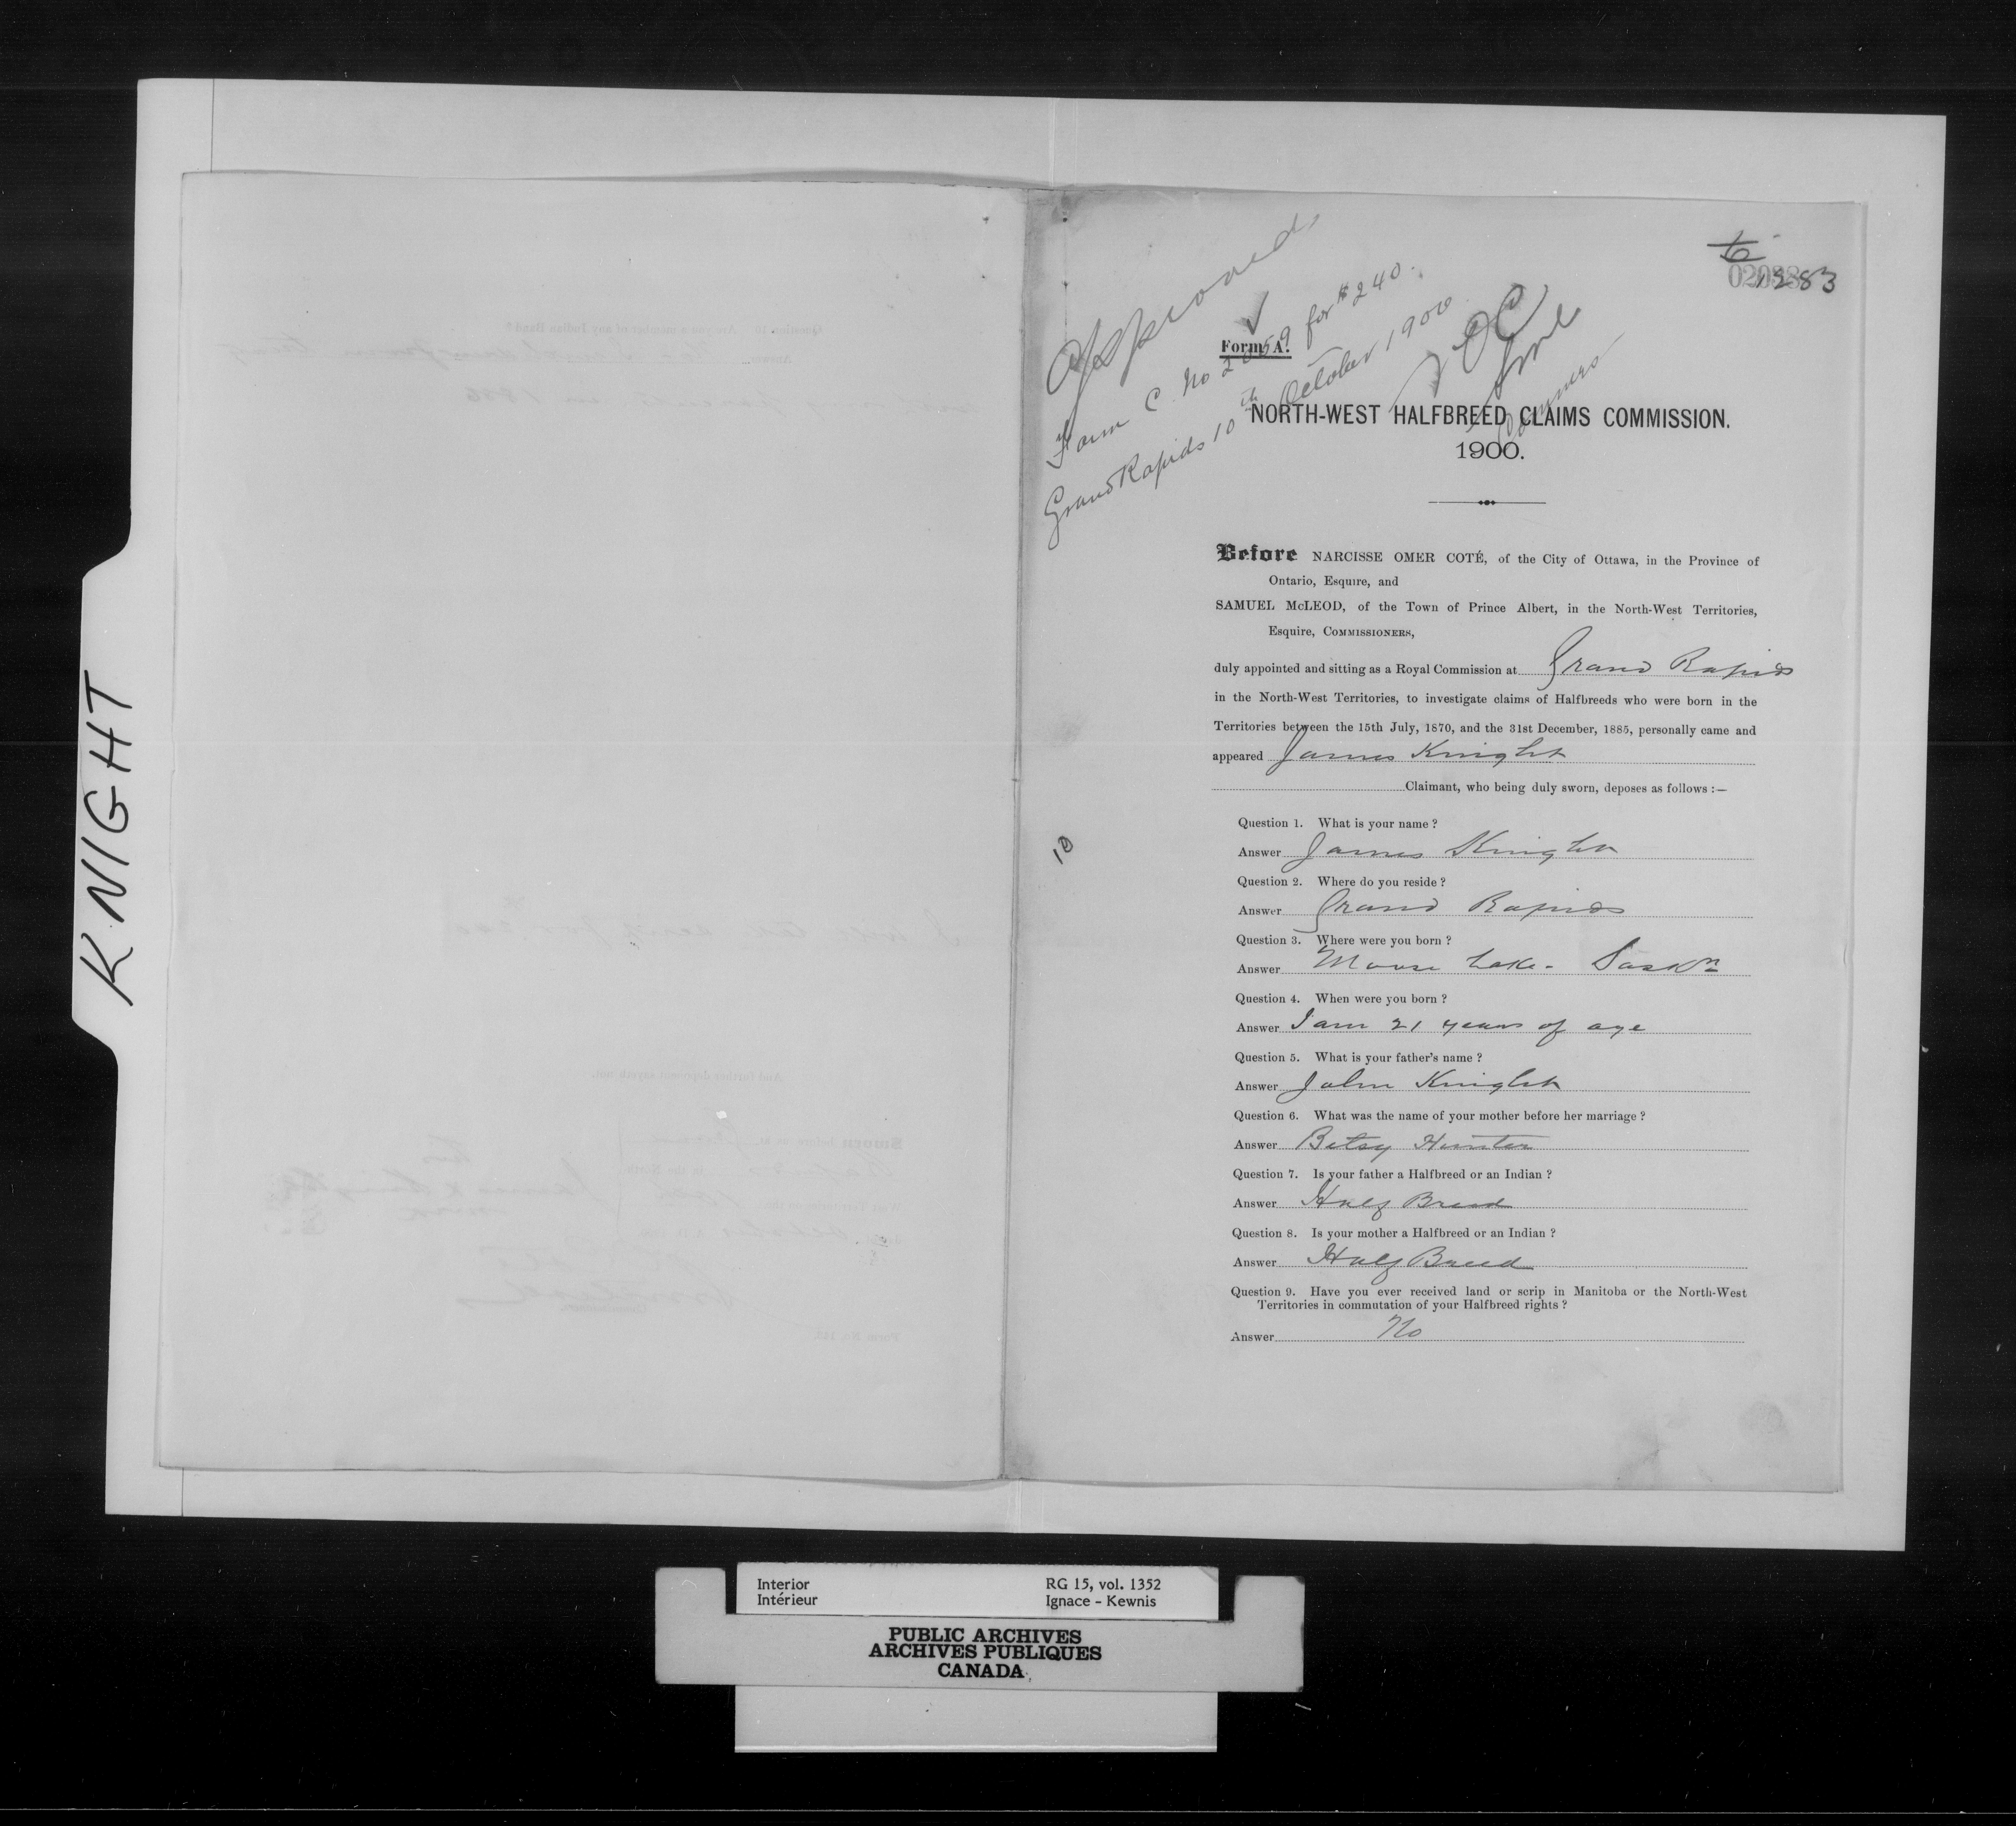 KNIGHT
1283
Approved
Form C. No 2059 for $240.
Grand Rapids 10th October 1900
NOC
Form A.
NORTH-WEST HALFBREED CLAIMS COMMISSION.
1900.
Before NARCISSE OMER COTÉ, of the City of Ottawa, in the Province of
Ontario, Esquire, and
SAMUEL McLEOD, of the Town of Prince Albert, in the North-West Territories,
Esquire, COMMISSIONERS,
duly appointed and sitting as a Royal Commission at Grand Rapids
in the North-West Territories, to investigate claims of Halfbreeds who were born in the
Territories between the 15th July, 1870, and the 31st December, 1885, personally came and
appeared James Knight
Claimant, who being duly sworn, deposes as follows :—
Question 1. What is your name ?
Answer James Knight
10
Question 2. Where do you reside ?
Answer Grand Rapids
Question 3. Where were you born ?
Answer Moose Lake - Saskn
Question 4. When were you born ?
Answer I am 21 years of age
Question 5. What is your father's name ?
Answer John Knight
Question 6. What was the name of your mother before her marriage ?
Answer Betsy Hunter
Question 7. Is your father a Halfbreed or an Indian ?
Answer Half Breed
Question 8. Is your mother a Halfbreed or an Indian ?
Answer Half Breed
Question 9. Have you ever received land or scrip in Manitoba or the North-West
Territories in commutation of your Halfbreed rights ?
Answer No
Interior RG 15, vol. 1352
Intérieur Ignace - Kewnis
PUBLIC ARCHIVES
ARCHIVES PUBLIQUES
CANADA